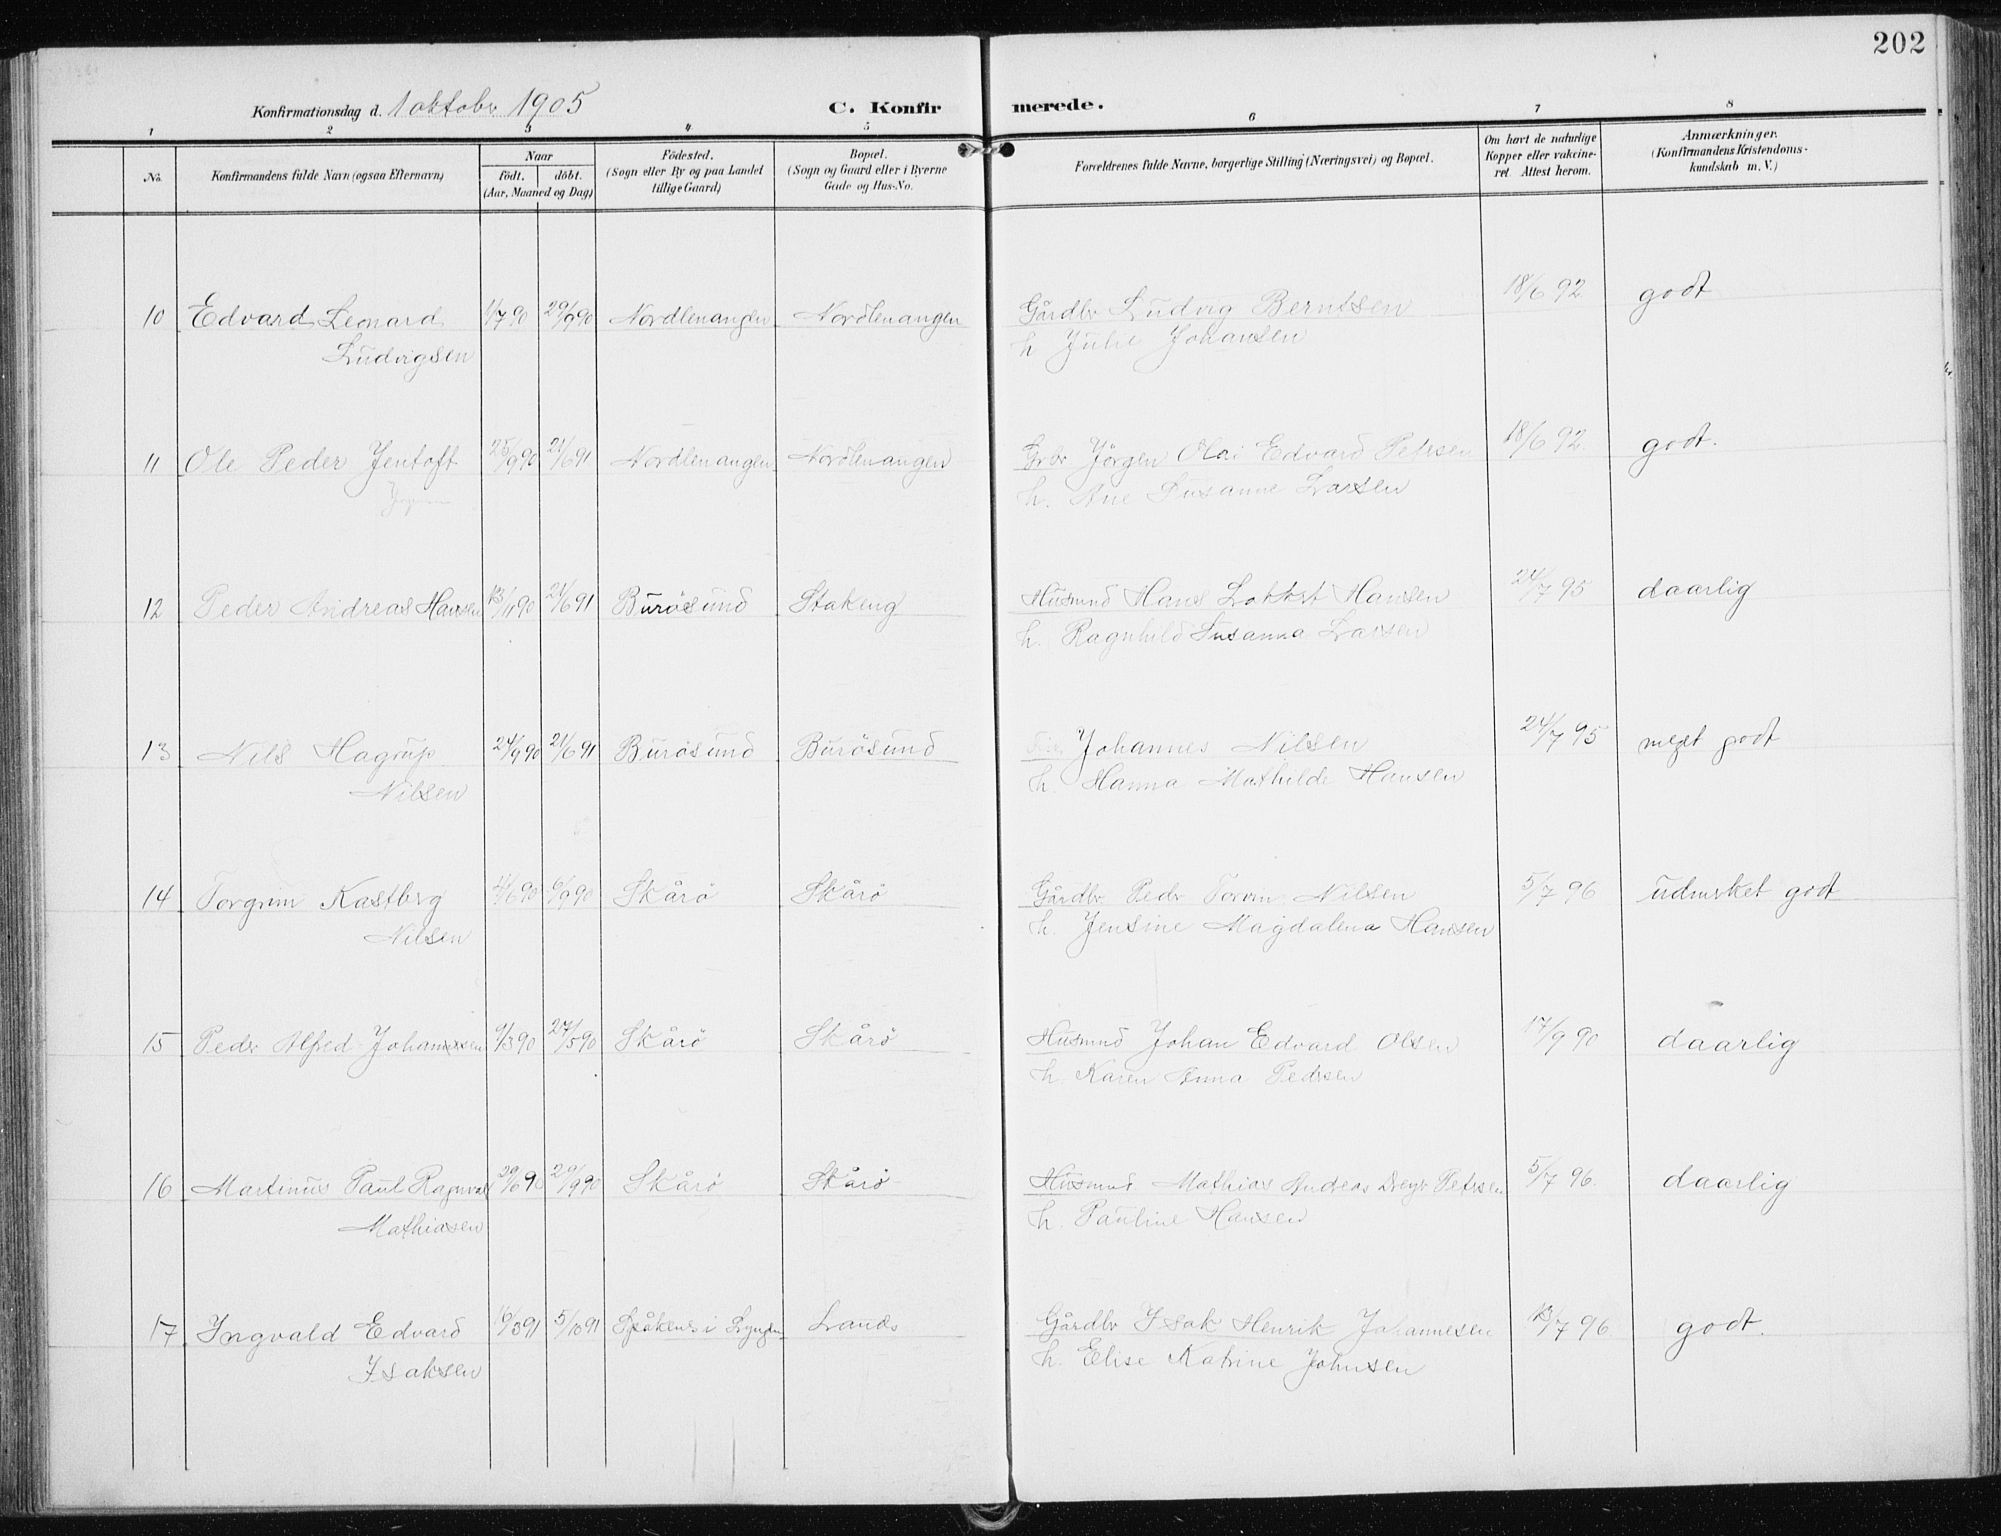 202
Konfirmationsdag d. 1 oktober 1905 C. Konfir merede.
1 2 3 4 5 6 7 8
No. Konfirmandens fulde Navn (ogsaa Efternavn) Naar födt. döbt. (Aar, Maaned og Dag) Födested. (Sogn eller By og paa Landet tillige Gaard) Bopæl. (Sogn og Gaard eller i Byerne Gade og Hus-No. Forældrenes fulde Navne, borgerlige Stilling (Næringsvei) og Bopæl. Om havt de naturlige Kopper eller vakcineret. Attest herom. Anmærkninger. (Konfirmandens Kristendomskundskab m. V.)
10 Edvard Leonard 1/7 90 29/9 90 Nordlenangen Nordlenangen Gårdbr Ludvig Berntsen 18/6 92 godt
Ludvigsen h Julie Johansen
11 Ole Peder Jentoft 25/9 90 21/6 91 Nordlenangen Nordlenangen Grbr Jörgen Olai Edvard Petersen 18/6 92. godt.
h. Ane Susanne Larsen
12 Peder Andreas Hansen 13/11 90 21/6 91 Burösund Stakeng Husmnd Hans Hansen 24/7 95 daarlig
h. Ragnhild Susanna Larsen
13 Nils Hagrup 24/9 90 21/6 91 Burösund Burösund Johannes Nilsen 24/7 95 meget godt
Nilsen h. Hanna Mathilde Hansen
14 Torgrim Kastberg 11/6 90 6/9 90 Skårö Skårö Gårdbr Peder Nilsen 5/7 96 udmerket godt
Nilsen h. Jensine Magdalena Hansen
15 Peder Alfred Johannesen 9/3 90 27/5 90 Skårö Skårö Husmnd Johan Edvard Olsen 17/9 90 daarlig
h. Karen Anna Pedersen
16 Martinus Paul Ragnvald 29/6 90 29/9 90 Skårö Skårö Husmnd Mathias Andreas Dreyer Petersen 5/7 96. daarlig
Mathiasen h. Pauline Hansen
17 Ingvald Edvard 16/3 91 5/10 91 Spåkenes i Lyngen Lanes Gårdbr Isak Henrik Johannesen 13/7 96. godt.
Isaksen h. Elise Katrine Johnsen